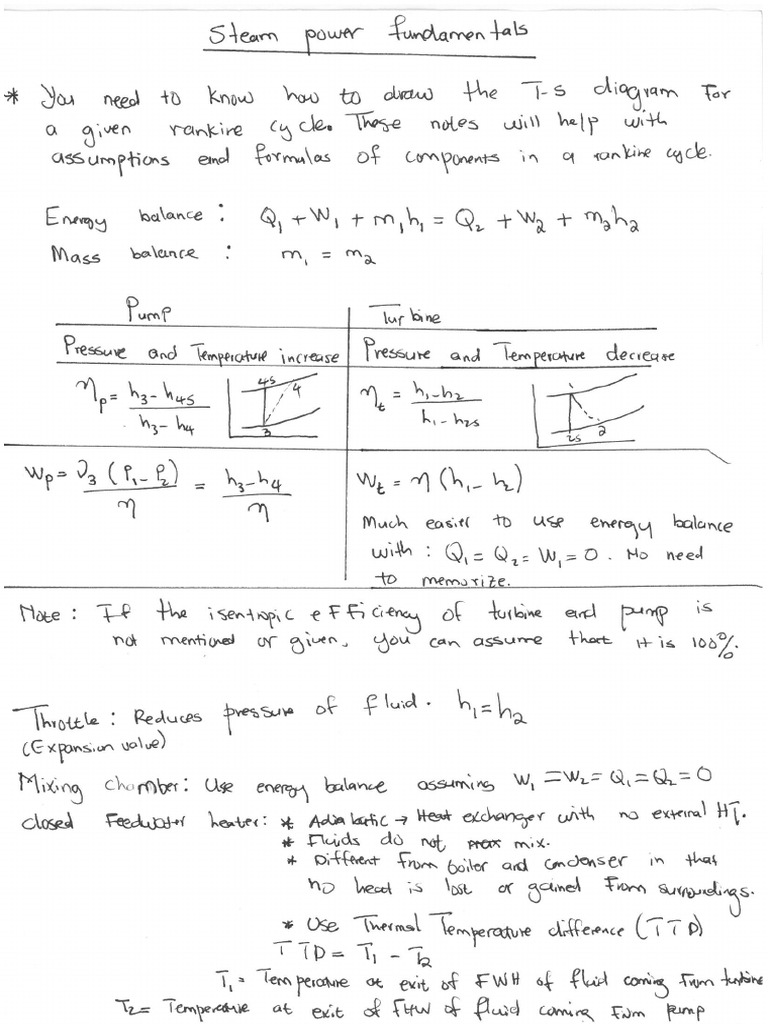 Steam power fundamentals
* You need to know how to draw the T-s diagram for
a given rankine cycle. These notes will help with
assumptions and formulas of components in a rankine cycle.
Energy balance : Q₁ + W₁ + m₁h₁ = Q₂ + W₂ + m₂h₂
Mass balance : m₁ = m₂
Pump
Turbine
Pressure and Temperature increase
Pressure and Temperature decrease
ηp = (h₃ - h₄s) / (h₃ - h₄)
4s 4
3
ηt = (h₁ - h₂) / (h₁ - h₂s)
1
2s 2
Wp = ν₃ (P₁ - P₂) / η = (h₃ - h₄) / η
Wt = η (h₁ - h₂)
Much easier to use energy balance
with : Q₁ = Q₂ = W₁ = 0. No need
to memorize.
Note : If the isentropic efficiency of turbine and pump is
not mentioned or given, you can assume that it is 100%.
Throttle : Reduces pressure of fluid. h₁ = h₂
(Expansion valve)
Mixing chamber : Use energy balance assuming W₁ = W₂ = Q₁ = Q₂ = 0
closed Feedwater heater : * Adiabatic → Heat exchanger with no external HT.
* Fluids do not mix.
* Different from boiler and condenser in that
no heat is lost or gained from surroundings.
* Use Thermal Temperature difference (TTD)
TTD = T₁ - T₂
T₁ = Temperature at exit of FWH of fluid coming from turbine
T₂ = Temperature at exit of FHW of fluid coming from pump